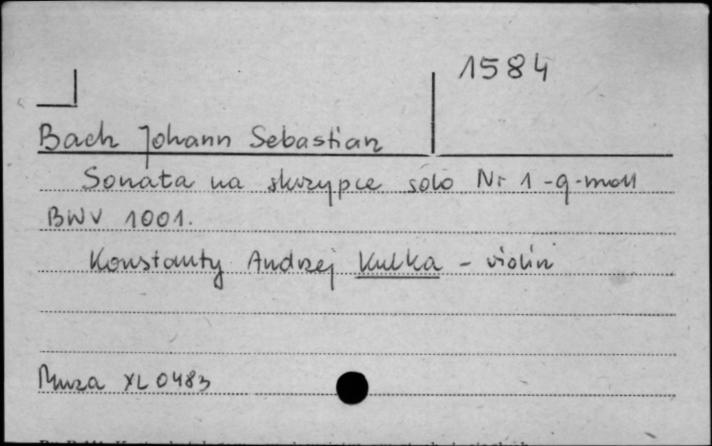 1584
Bach Johann Sebastian
Sonata na skrzypce solo Nr 1 - g-moll
BWV 1001.
Konstanty Andrzej Kulka - violin
Muza XL 0483